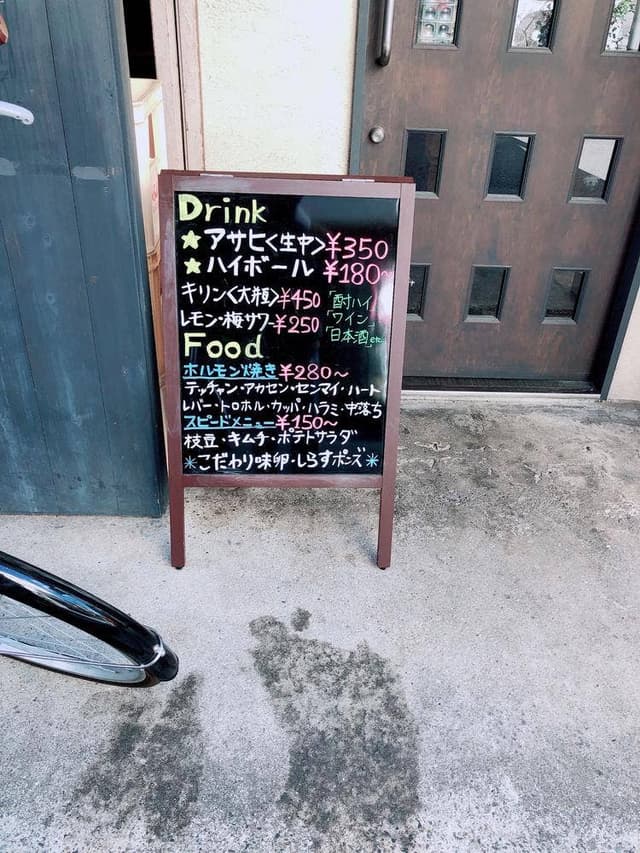 Drink
★アサヒ<生中>¥350
★ハイボール ¥180~
キリン<大瓶>¥450
レモン・梅サワー¥250
「酎ハイ」
「ワイン」
「日本酒」etc
Food
ホルモン焼き¥280~
テッチャン・アカセン・センマイ・ハート
レバー・トロホル・カッパ・ハラミ・中落ち
スピードメニュー¥150~
枝豆・キムチ・ポテトサラダ
*こだわり味卵・しらすポンズ*